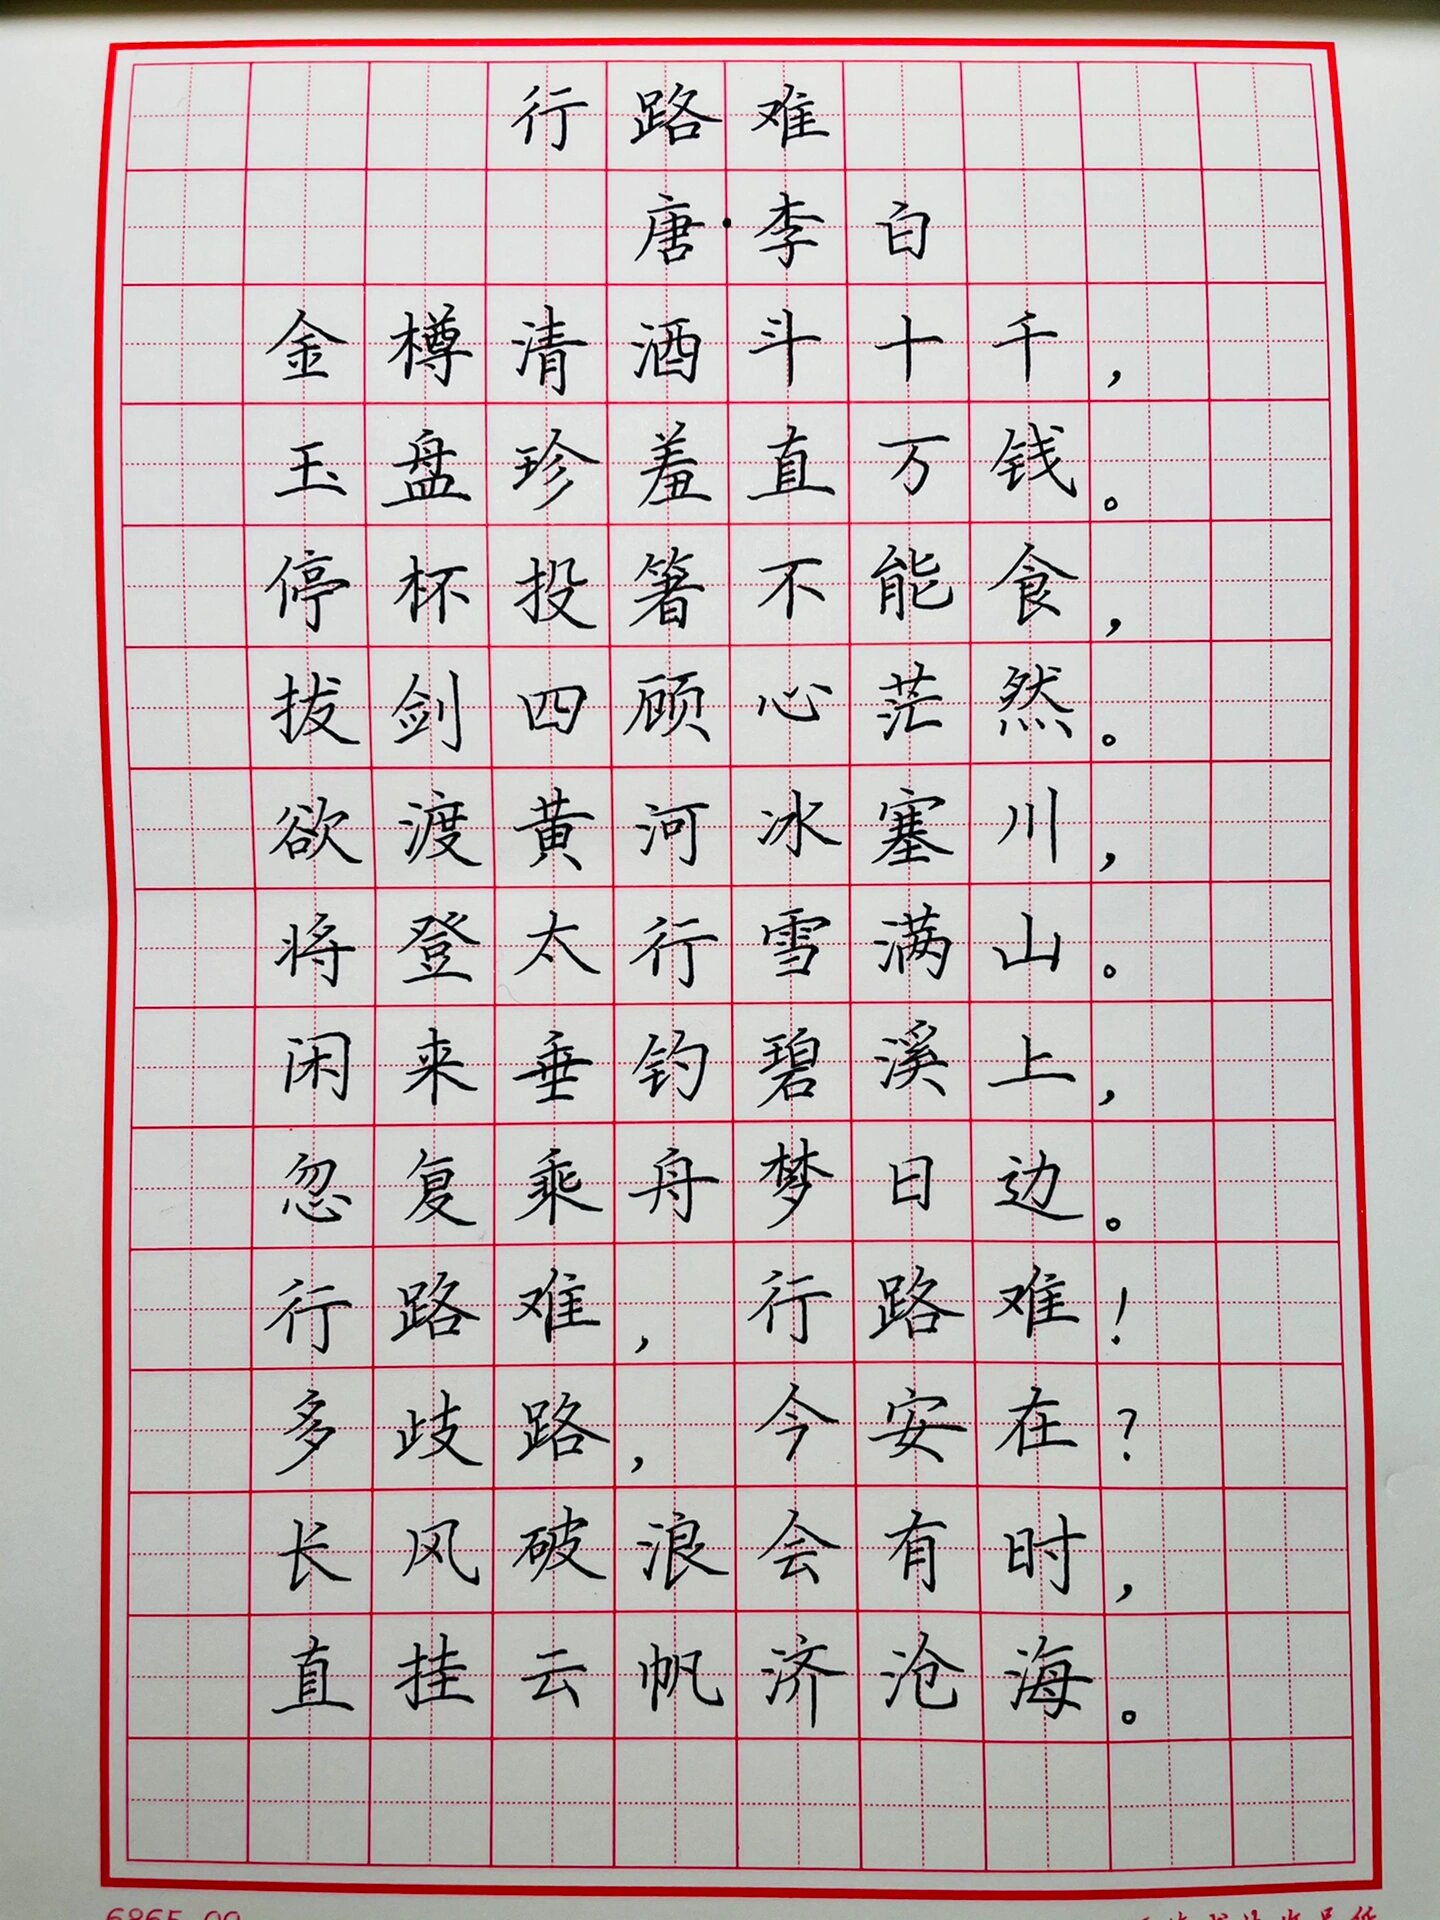 行路难
唐·李白
金樽清酒斗十千，
玉盘珍羞直万钱。
停杯投箸不能食，
拔剑四顾心茫然。
欲渡黄河冰塞川，
将登太行雪满山。
闲来垂钓碧溪上，
忽复乘舟梦日边。
行路难，行路难！
多歧路，今安在？
长风破浪会有时，
直挂云帆济沧海。